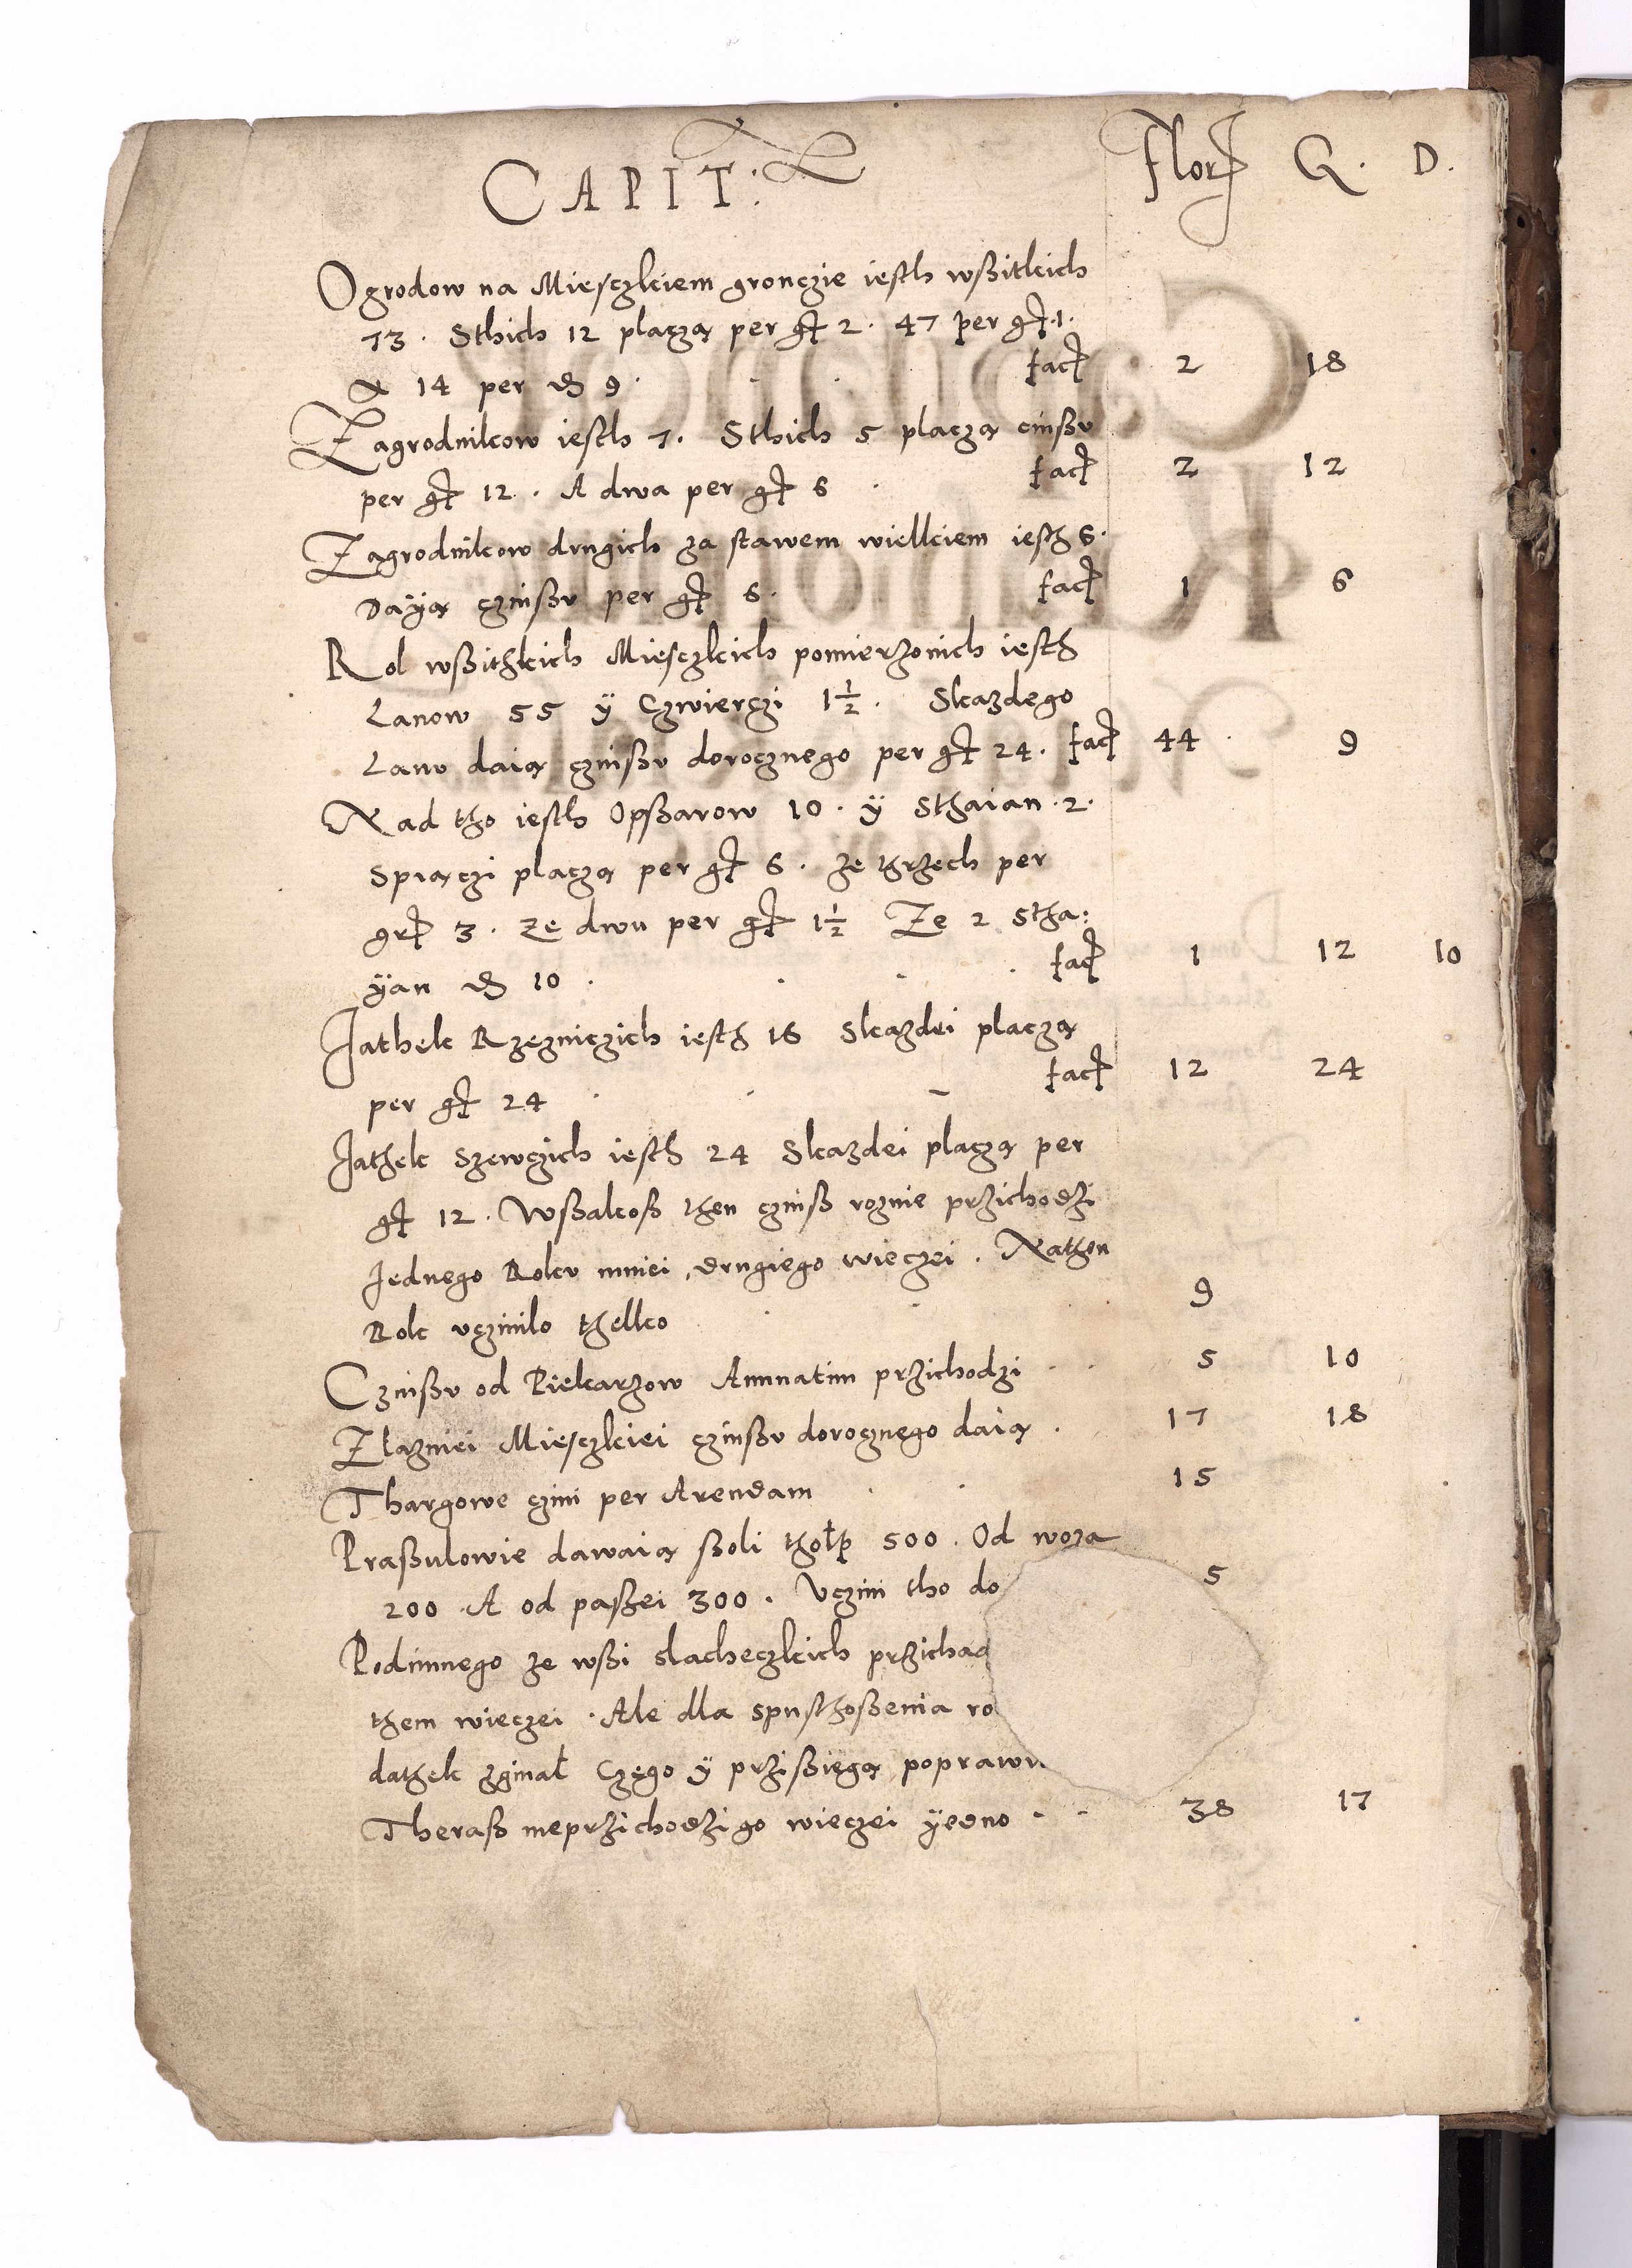 CAPIT: Flor G. D.
Ogrodow na Miesczkiem gronczie iesth wßitkich
73. Sthich 12 placzą per gł 2. 47 per gł. 1.
A 14 per d 9. fact 2 18
Zagrodnikow iesth 7. Sthich 5 placzą cinßv
per gł 12. A dwa per gł 6. fact 2 12
Zagrodnikow drugich za stawem wielkiem iesth 6.
dayą czinßv per gł 6. fact 1 6
Rol wßithkich Miesczkich pomierzonich iesth
Lanow 55 ÿ Czwierczi 1½. Skazdego
Lanv daią czinßv dorocznego per gł 24. fact 44 9
Nad tho iesth Opßarow 10. ÿ Sthaian. 2.
Spiączi placzą per gł 6. ze thrzech per
grł 3. Ze dwu per gł 1½ Ze 2 stha:
ÿan d 10. fact 1 12 10
Jathek Rzezniczich iesth 16 Skazdei placzą
per gł 24 fact 12 24
Jathek Szewczich iesth 24 Skazdei placzą per
gł 12. Wßakoß then czinß roznie przichodzi
Jednego Rokv mniei, drugiego wieczei. Nathen
Rok vczinilo thelko 9
Czinßv od Piekarzow Annuatim przichodzi 5 10
Złazniei Miesczkiei czinßv dorocznego daią. 17 18
Thargowe czini per Arendam 15
Praßulowie dawaią ßoli thołp 500. Od woza
200. A od paßzei 300. Vczini tho do 5
Podimnego ze wßi slacheczkich przichad
them wieczei. Ale dla spusthoßenia ro
dathek zginał Czego ÿ przißiegą poprawu
Theraß nieprzichodzi go wieczei ÿedno 38 17